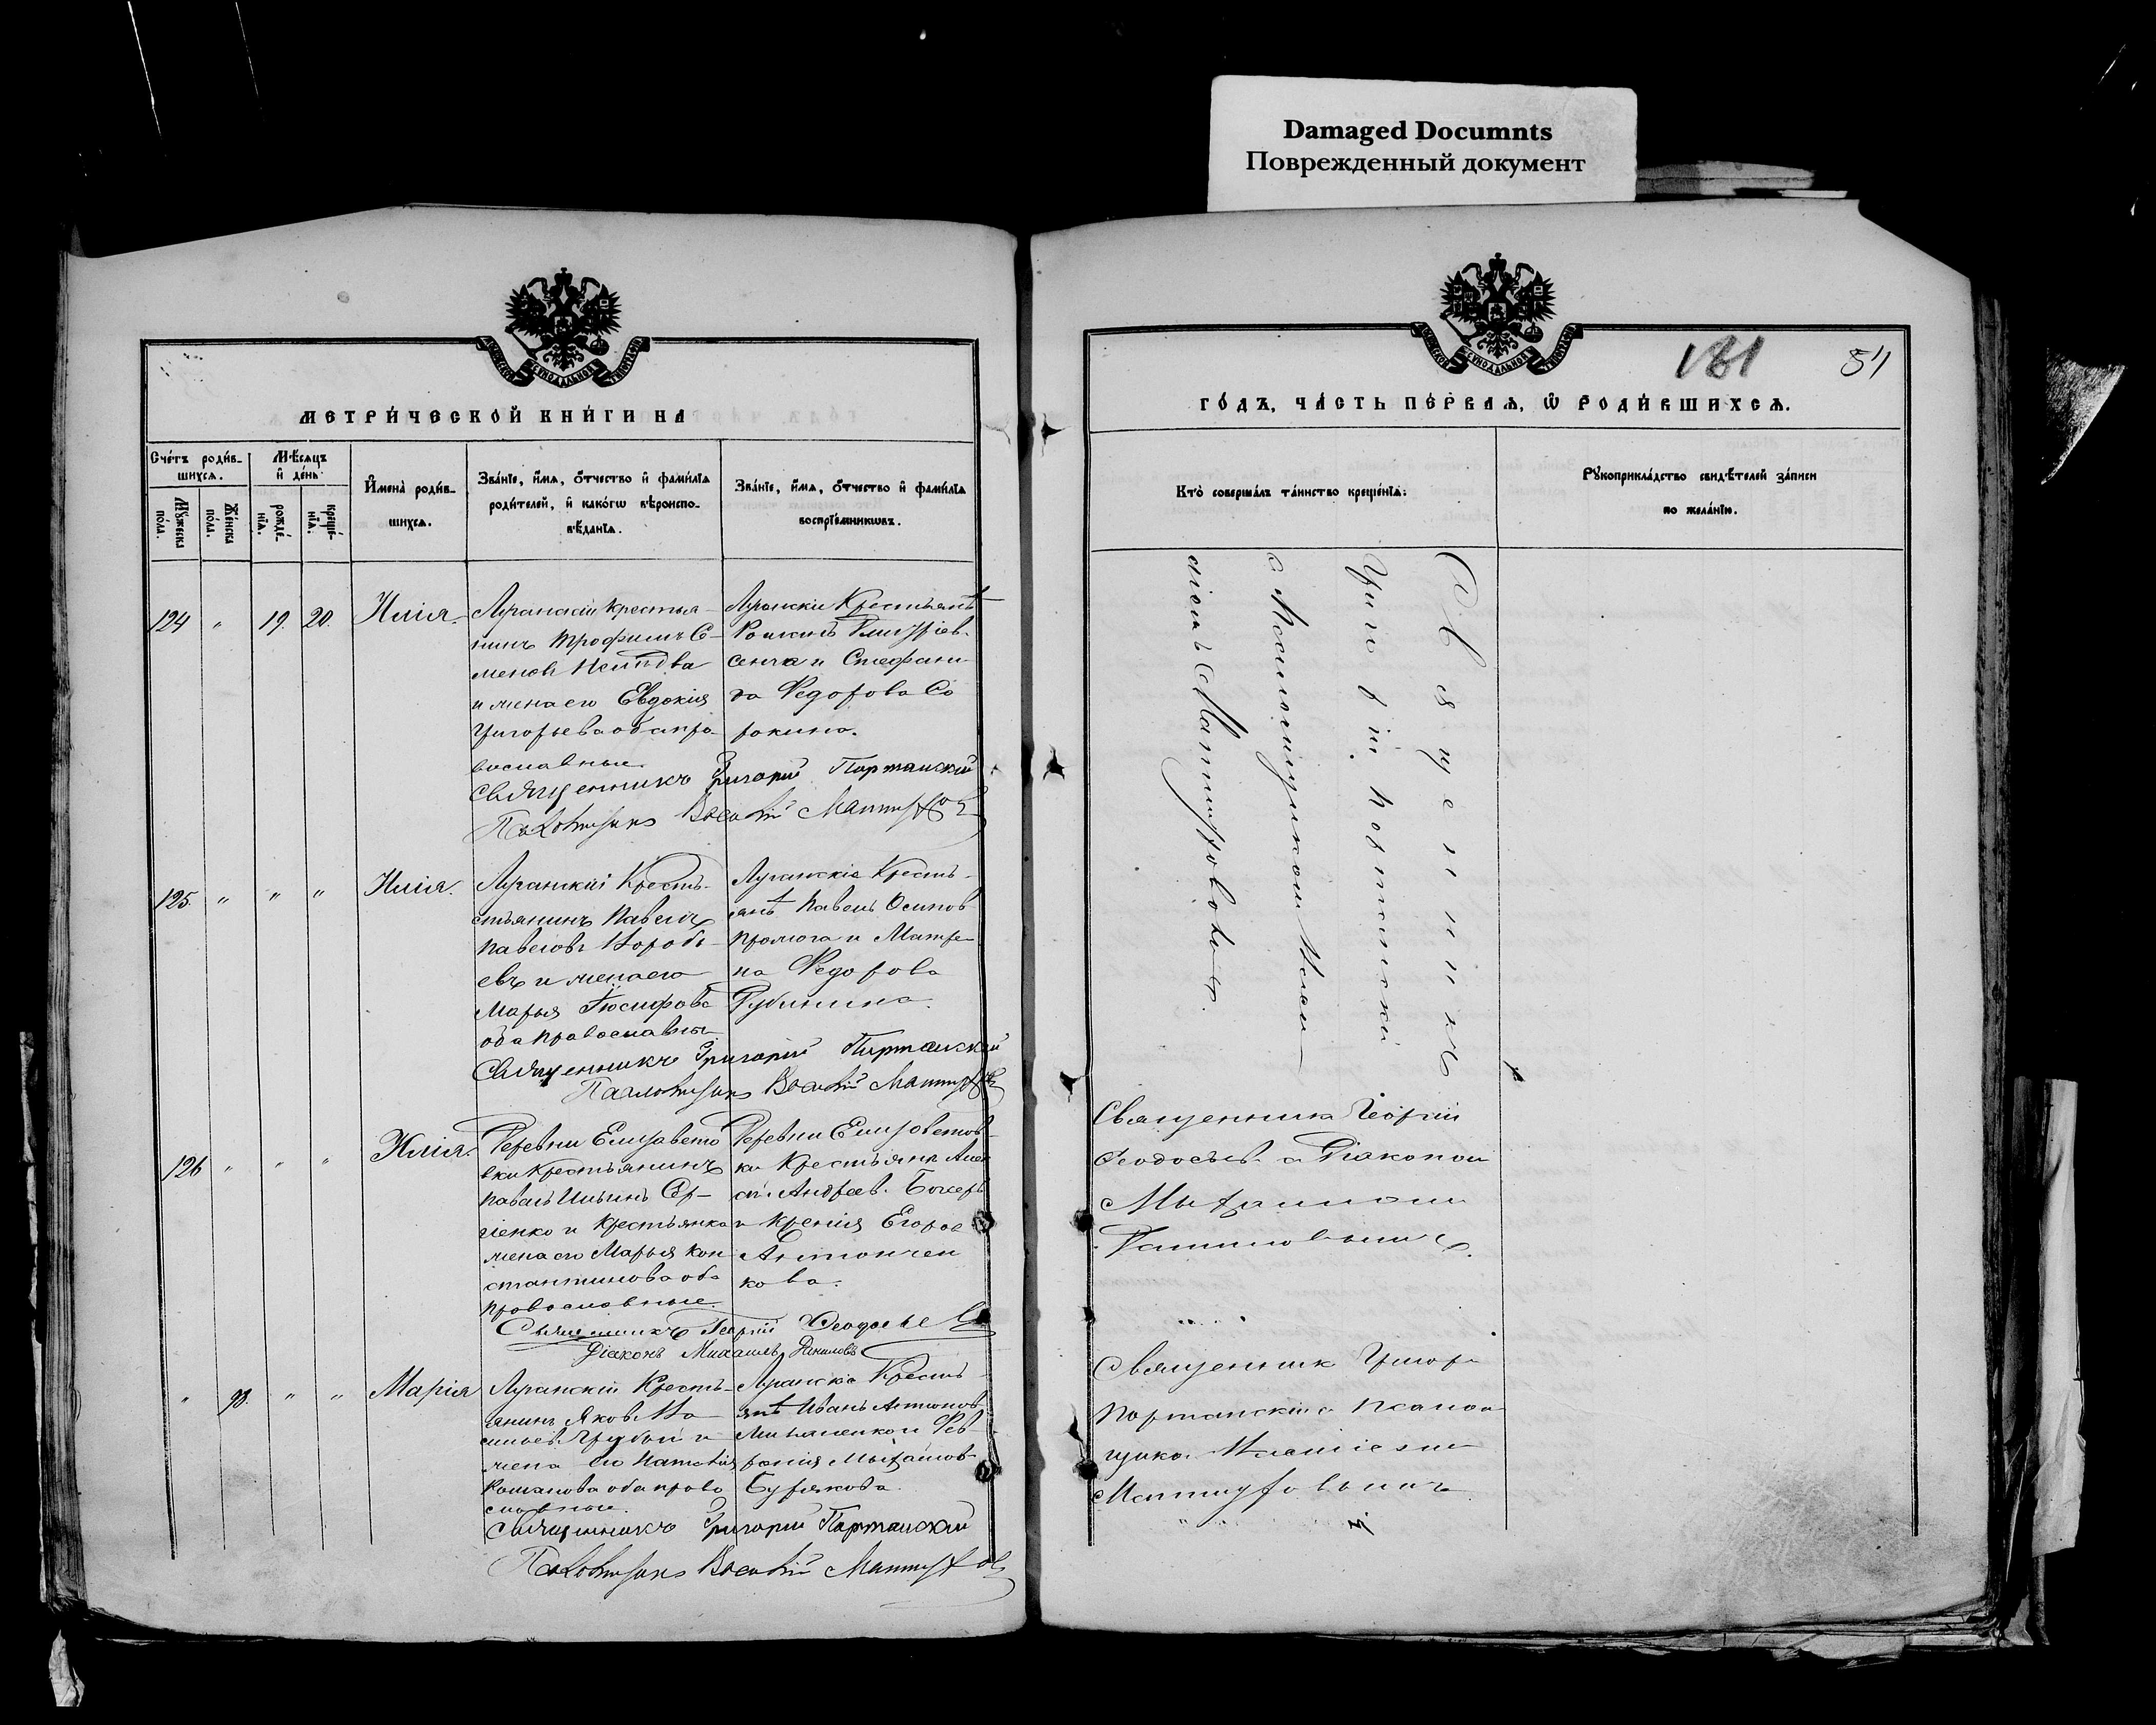 Damaged Documnts
Поврежденный документ
МЕТРИЧЕСКОЙ КНИГИ НА
Счетъ родив-
шихся.
Мужеска пола.
Женска пола.
Мѣсяцъ и день
рожденія.
крещенія.
Имена родив-
шихся.
Званіе, имя, отчество и фамилія
родителей, и какогѡ вѣроиспо-
вѣданія.
Званіе, имя, отчество и фамилія
воспріемникѡвъ.
124 " 19. 20. Илія.
Луганскій крестья-
нинъ Трофимъ Се-
меновъ
и жена его Евдокія
Григорьева оба пра
вославные.
Луганскіе Крестьянѣ
и Стефани
да Федорова Со
рокина.
Священникъ Григорій Портанскій
Псаломщикъ Василій
125. " " " Илія.
Луганскій Кресть-
стьянинъ Павелъ
Павловъ Воробь
евъ и жена его
Марья Іосифова
оба православны
Луганскіе Кресть-
янѣ Павелъ Осипов
и Матре
на Федорова
Рубинина.
Священникъ Григорій Портанскій
Псаломщикъ Василій
126 " " " Илія.
Деревни Елизавето
вки Крестьянинъ
Павелъ Ильинъ Сер-
гіенко и Крестьянка
жена его Марья Кон
стантинова оба
православные.
Деревни Елизаветов-
ки Крестьяни Алек
сѣй Андреев.
и Ксенія Егоров
Антончен
кова.
Священникъ Георгій Феодосьев
Діаконъ Михаилъ Даниловъ
" 98. " " Марія
Луганскій Кресть-
янинъ Яковъ Ва
сильев. и
жена его Наталія
Романова оба право
славные.
Луганскіе Кресть
янѣ Иванъ Антонов
и Фев
ронія Михайлов
Бурлкова.
Священникъ Григорій Портанскій
Псаломщикъ Василій
181 51
ГОДЪ, ЧАСТЬ ПЕРВАЯ, Ѡ РОДИВШИХСЯ.
Кто совершалъ таинство крещенія:
Рукоприкладство свидѣтелей записи
по желанію.
Священникъ
Григорій Портанскій
с Псаломщикомъ Васи
ліемъ
Священника Георгій
Феодосьев. с Діакономъ
Михаиломъ
Даниловымъ.
Священник Григор
Портанскій с Псалом
щиком Василіем